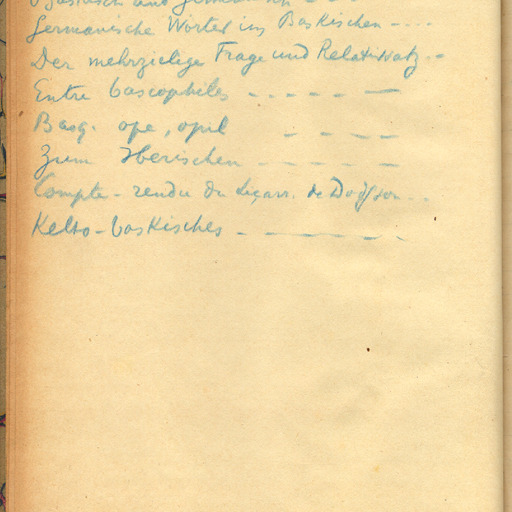 Baskisch und
Germanische Wörter im Baskischen - - - -
Der mehrzielige Frage und Relativsatz. -
Entre bascophiles - - - - - -
Basq. ope, opil - - - -
Zum Iberischen - - - - -
Compte-rendu du Leiçarr. de Dodgson - - -
Kelto-baskisches - - - - - - -